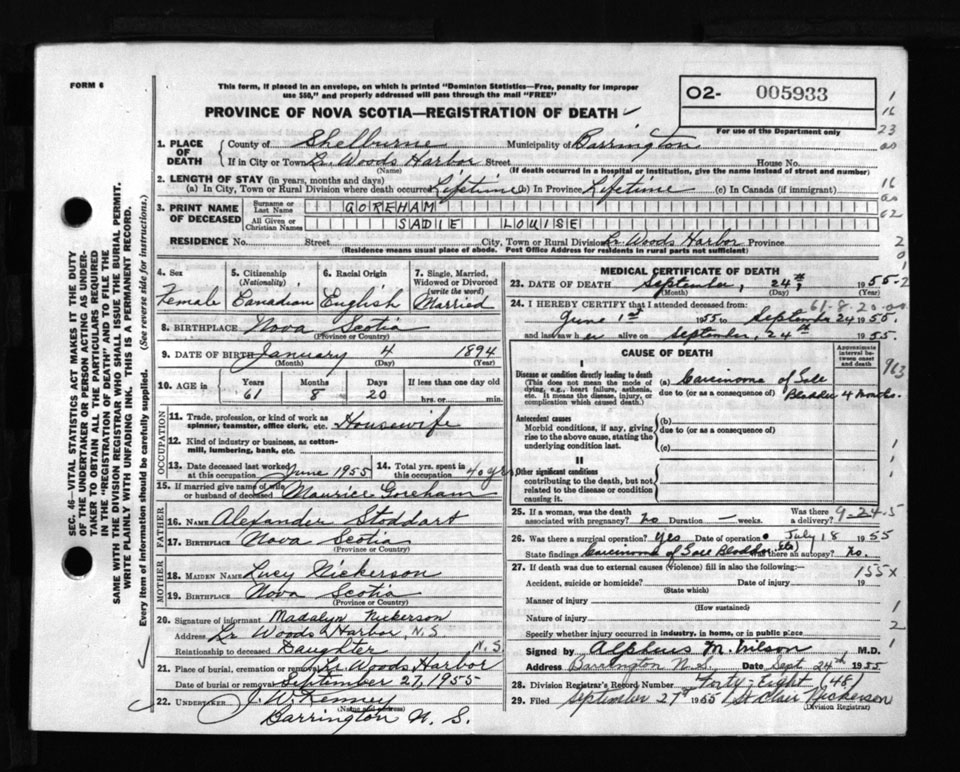 FORM 6
This form, if placed in an envelope, on which is printed "Dominion Statistics—Free, penalty for improper
use $50," and properly addressed will pass through the mail "FREE"
PROVINCE OF NOVA SCOTIA—REGISTRATION OF DEATH
O2- 005933
For use of the Department only
1. PLACE OF DEATH
County of Shelburne Municipality of Barrington
If in City or Town Lr. Woods Harbor Street House No.
(Name) (If death occurred in a hospital or institution, give the name instead of street and number)
2. LENGTH OF STAY (in years, months and days)
(a) In City, Town or Rural Division where death occurred Lifetime (b) In Province Lifetime (c) In Canada (if immigrant)
3. PRINT NAME OF DECEASED
Surname or Last Name GOREHAM
All Given or Christian Names SADIE LOUISE
RESIDENCE No. Street City, Town or Rural Division Lr Woods Harbor Province
(Residence means usual place of abode. Post Office Address for residents in rural parts not sufficient)
4. Sex Female
5. Citizenship (Nationality) Canadian
6. Racial Origin English
7. Single, Married, Widowed or Divorced (write the word) Married
8. BIRTHPLACE Nova Scotia
(Province or Country)
9. DATE OF BIRTH January 4 1894
(Month) (Day) (Year)
10. AGE in Years 61 Months 8 Days 20 If less than one day old hrs. or min.
OCCUPATION
11. Trade, profession, or kind of work as spinner, teamster, office clerk, etc. Housewife
12. Kind of industry or business, as cotton-mill, lumbering, bank, etc.
13. Date deceased last worked at this occupation June 1955
14. Total yrs. spent in this occupation 40 yrs
15. If married give name of wife or husband of deceased Maurice Goreham
FATHER
16. NAME Alexander Stoddart
17. BIRTHPLACE Nova Scotia
(Province or Country)
MOTHER
18. MAIDEN NAME Lucy Nickerson
19. BIRTHPLACE Nova Scotia
(Province or Country)
20. Signature of informant Madalyn Nickerson
Address Lr Woods Harbor N.S
Relationship to deceased Daughter N.S.
21. Place of burial, cremation or removal Lr Woods Harbor
Date of burial or removal September 27, 1955
22. UNDERTAKER J. W. Kenney
(Name and address)
Barrington N. S.
MEDICAL CERTIFICATE OF DEATH
23. DATE OF DEATH September, 24th, 1955
(Month) (Day) (Year)
24. I HEREBY CERTIFY that I attended deceased from:
June 1st 1955 to September 24 1955.
and last saw h er alive on September, 24th 1955.
CAUSE OF DEATH
Approximate interval between onset and death
I
Disease or condition directly leading to death
(This does not mean the mode of dying, e.g., heart failure, asthenia, etc. It means the disease, injury, or complication which caused death.)
(a) Carcinoma of Gall
due to (or as a consequence of) Bladder 4 months.
Antecedent causes
Morbid conditions, if any, giving rise to the above cause, stating the underlying condition last.
(b)
due to (or as a consequence of)
(c)
II
Other significant conditions
contributing to the death, but not related to the disease or condition causing it.
25. If a woman, was the death associated with pregnancy? no Duration — weeks. Was there a delivery?
26. Was there a surgical operation? Yes Date of operation July 18 1955
State findings Carcinoma of Gall Bladder. Was there an autopsy? No.
27. If death was due to external causes (violence) fill in also the following:—
Accident, suicide or homicide? Date of injury 19
(State which)
Manner of injury
(How sustained)
Nature of injury
Specify whether injury occurred in industry, in home, or in public place
Signed by Alpheus M. Wilson M.D.
Address Barrington N.S. Date Sept. 24th 1955
28. Division Registrar's Record Number Forty-Eight (48)
29. Filed September 27th 1955 St Clair Nickerson
(Division Registrar)
SEC. 46—VITAL STATISTICS ACT MAKES IT THE DUTY
OF THE UNDERTAKER OR PERSON ACTING AS UNDER-
TAKER TO OBTAIN ALL THE PARTICULARS REQUIRED
IN THE "REGISTRATION OF DEATH" AND TO FILE THE
SAME WITH THE DIVISION REGISTRAR WHO SHALL ISSUE THE BURIAL PERMIT.
WRITE PLAINLY WITH UNFADING INK. THIS IS A PERMANENT RECORD.
Every item of information should be carefully supplied. (See reverse side for instructions.)
61-8-20-00
963
9-24-5
155x